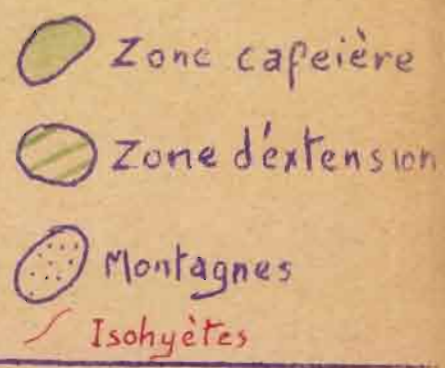 Zone cafeière
Zone d'éxtension
Montagnes
Isohyètes